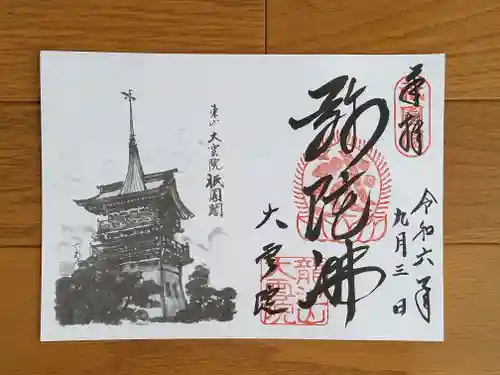 奉拝
令和六年
九月三日
弥陀佛
大雲院
龍池山
大雲院
東山 大雲院 祇園閣